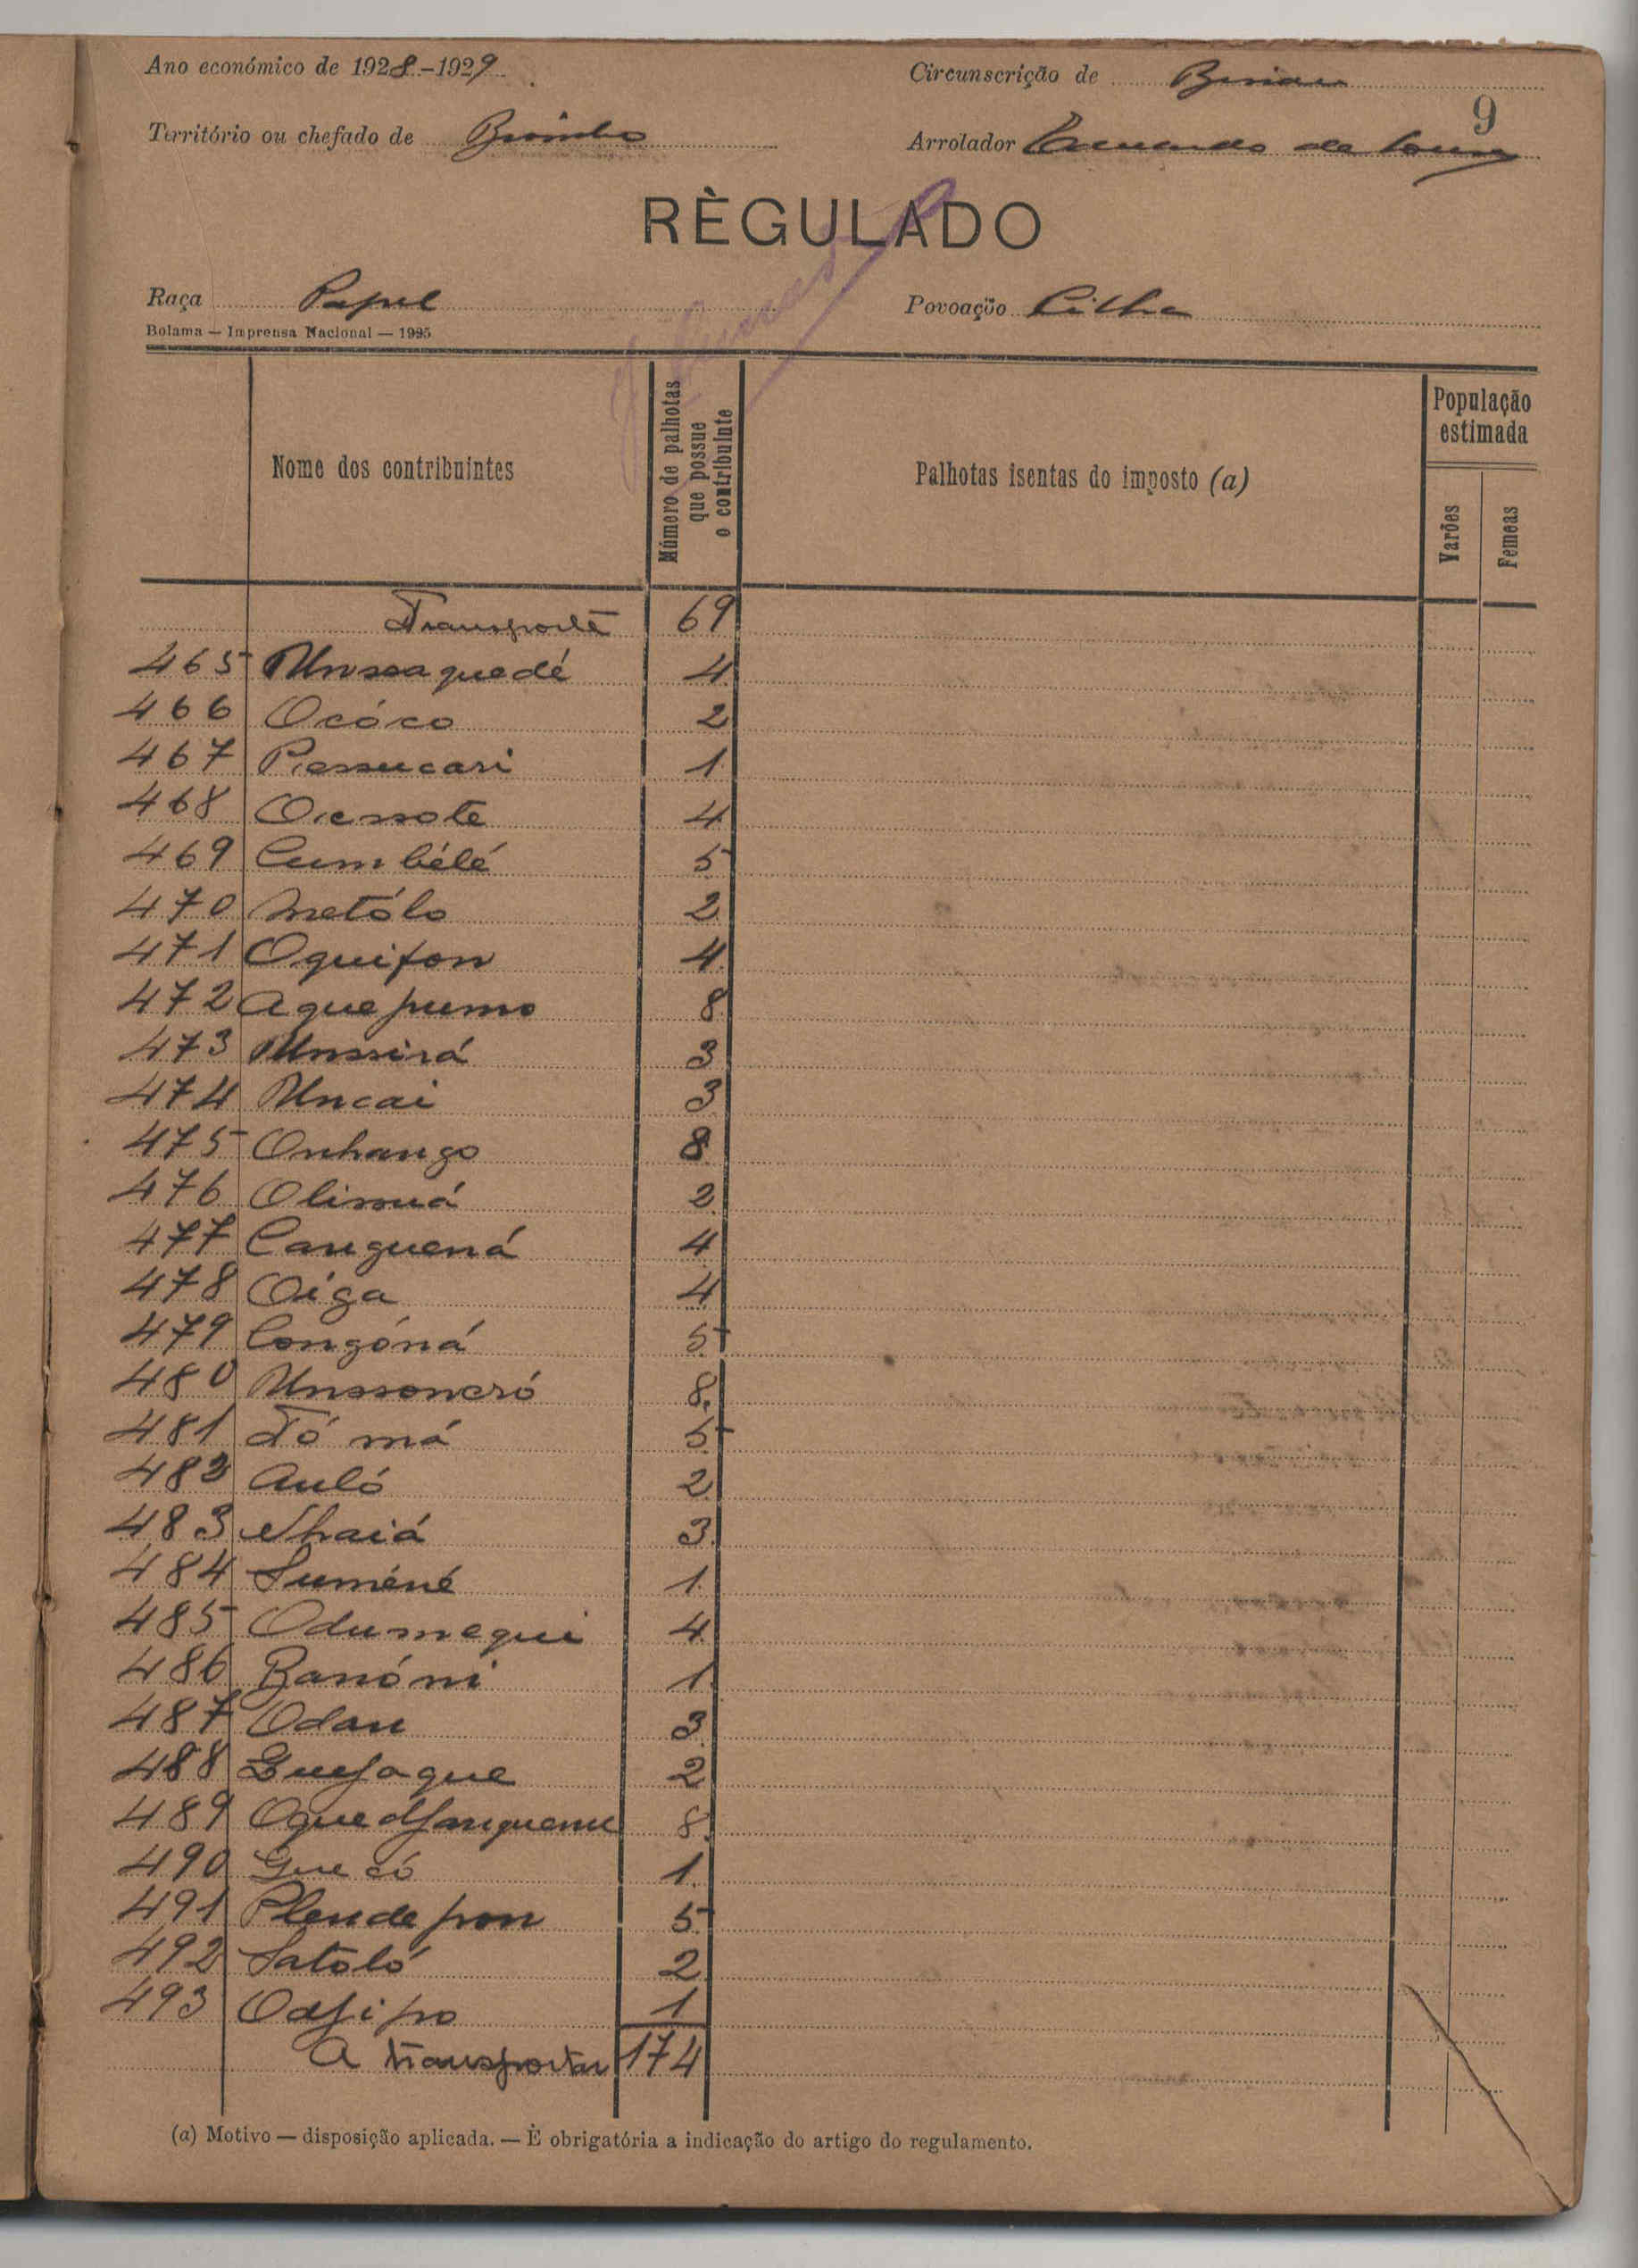 Ano económico de 1928-1929
Circunscrição de Bissau
9
Território ou chefado de
Arrolador de
RÈGULADO
Raça Papel
Povoação
Bolama — Imprensa Nacional — 1925
Nome dos contribuintes
Número de palhotas que possue o contribuinte
Palhotas isentas do imposto (a)
População estimada
Varões
Femeas
Transporte 69
465 Unssaquedé 4
466 Ocóco 2
467 Pessucari 1
468 4
469 Cumbélé 5
470 Metólo 2
471 Oquifon 4
472 Aquepumo 8
473 Unssirá 3
474 Uncai 3
475 Onhango 8
476 2
477 Canguená 4
478 Oiga 4
479 Congóná 5
480 Unssoncró 8
481 Tó má 5
482 Auló 2
483 Nhaiá 3
484 Suméné 1
485 Odumequi 4
486 Banóni 1
487 Odan 3
488 2
489 8
490 Que có 1
491 Plendepon 5
492 Satoló 2
493 1
A transportar 174
(a) Motivo — disposição aplicada. — È obrigatória a indicação do artigo do regulamento.